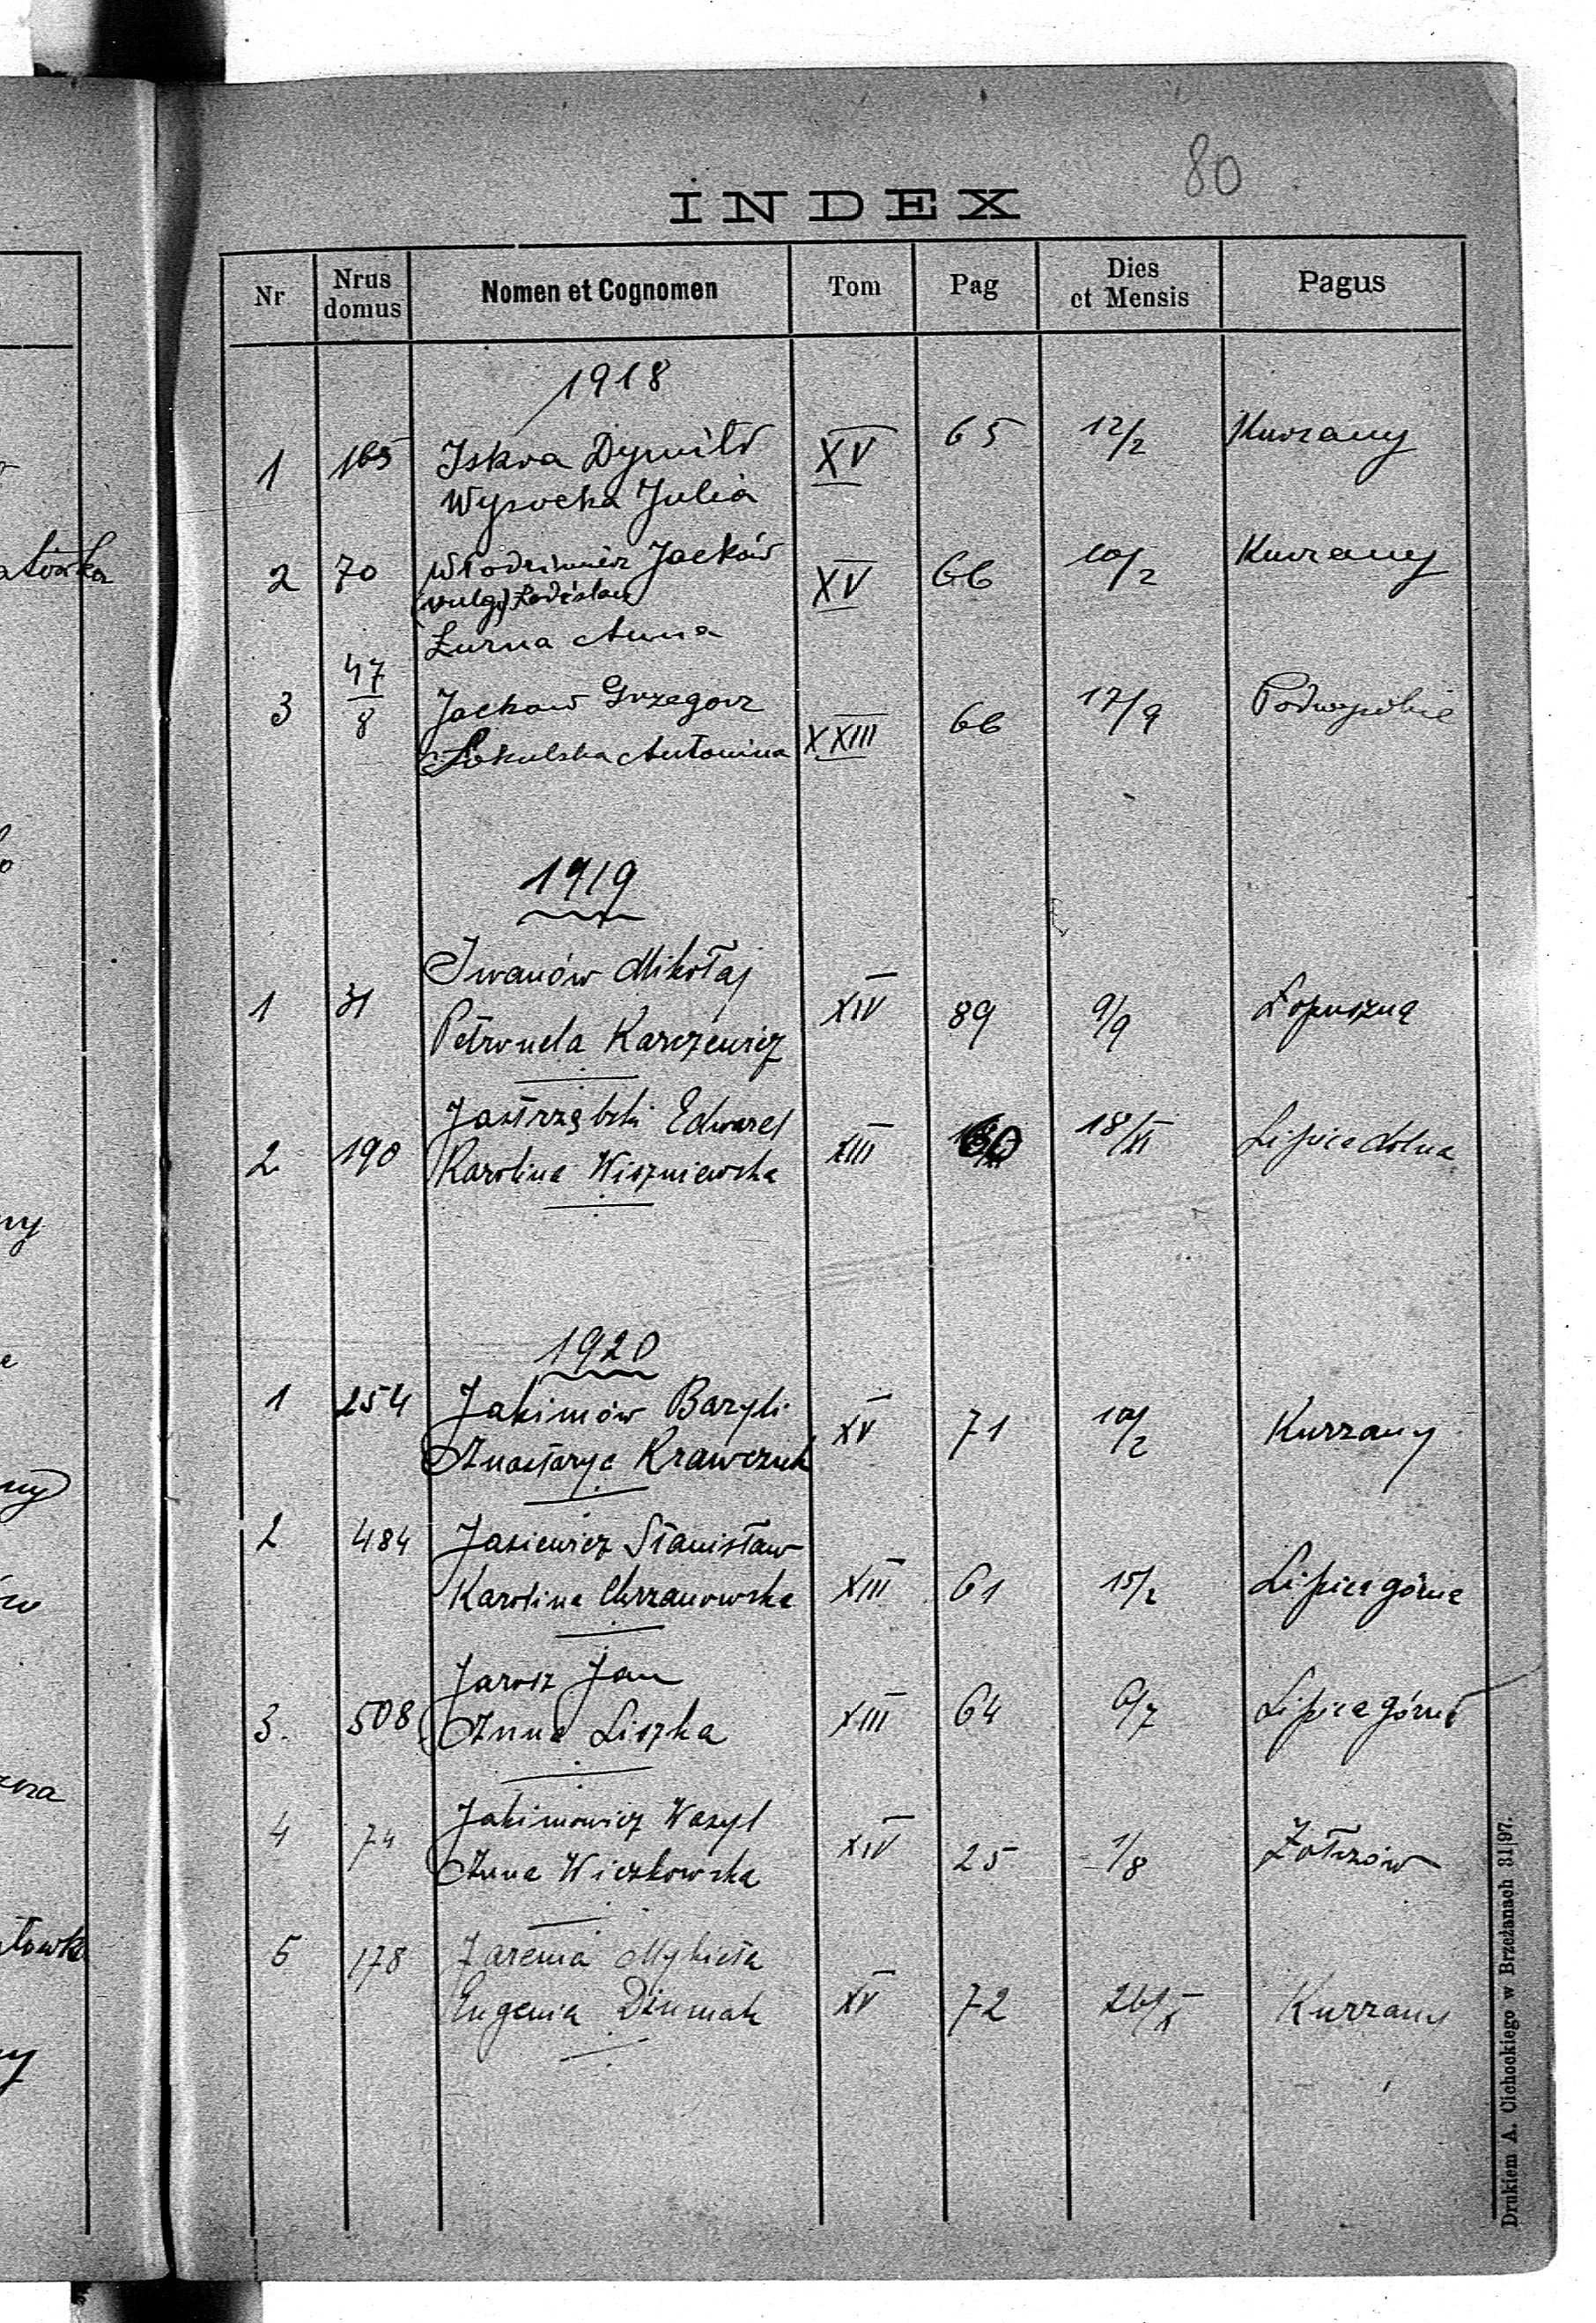 80
INDEX
Nr Nrus domus Nomen et Cognomen Tom Pag Dies et Mensis Pagus
1918
1 165 Iskra Dymitr XV 65 12/2 Kurzany
Wysocka Julia
2 70 Włodzimierz Jacków XV 66 10/2 Kurzany
(vulgo) Ładisław
Żurna Anna
3 47/8 Jackow Grzegorz XXIII 66 17/9
Sokulska Antonina
1919
1 31 Iwanów Mikołaj XIV 89 9/9 Łopuszną
Petronela Karczewicz
2 190 Jastrzębski Edward XIII 60 18/XI Lipica dolna
Karolina Wiszniewska
1920
1 254 Jakimów Bazyli XV 71 10/2 Kurzany
Anastazya Krawczuk
2 484 Jasiewicz Stanisław XIII 61 15/2 Lipica górna
Karolina Chrzanowska
3. 508 Jarosz Jan XIII 64 6/7 Lipica górna
Anna Liszka
4 74 Jakimowicz Wasyl XIV 25 1/8 Żołczów
Anna Wiczkowska
5 178 Jarema Mykieta XV 72 26/X Kurzany
Eugenia Dziumak
Drukiem A. Cichockiego w Brzeżanach 31|97.